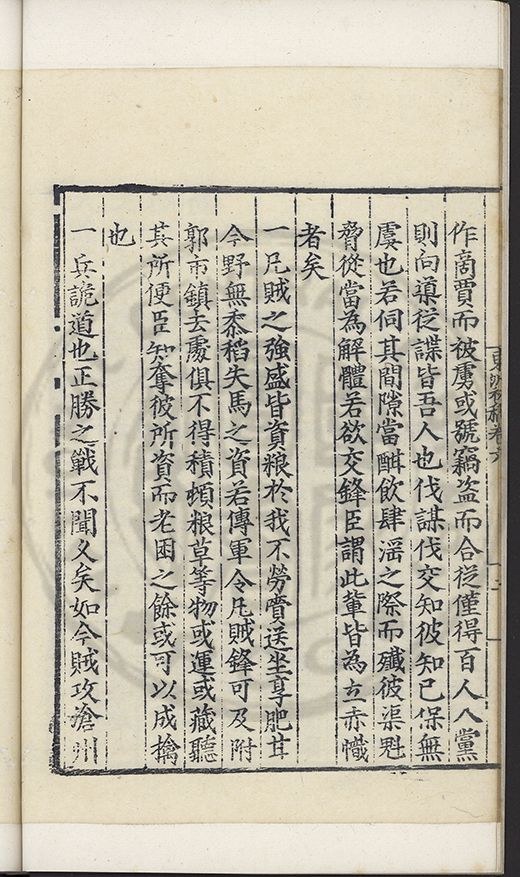 作商賈而被虜或號竊盜而合從僅得百人人黨
則向導從諜皆吾人也伐謀伐交知彼知己保無
虞也若伺其間隙當酣飲肆滛之際而殲彼渠魁
脅從當為解體若欲交鋒臣謂此軰皆為立赤幟
者矣
一凡賊之強盛皆資粮於我不勞賫送坐享肥甘
今野無黍稻失馬之資若傳軍令凡賊鋒可及附
郭市鎮去䖏俱不得積頓粮草等物或運或藏聽
其所便臣知奪彼所資而老困之餘或可以成擒
也
一兵詭道也正勝之戰不聞乂矣如今賊攻滄州